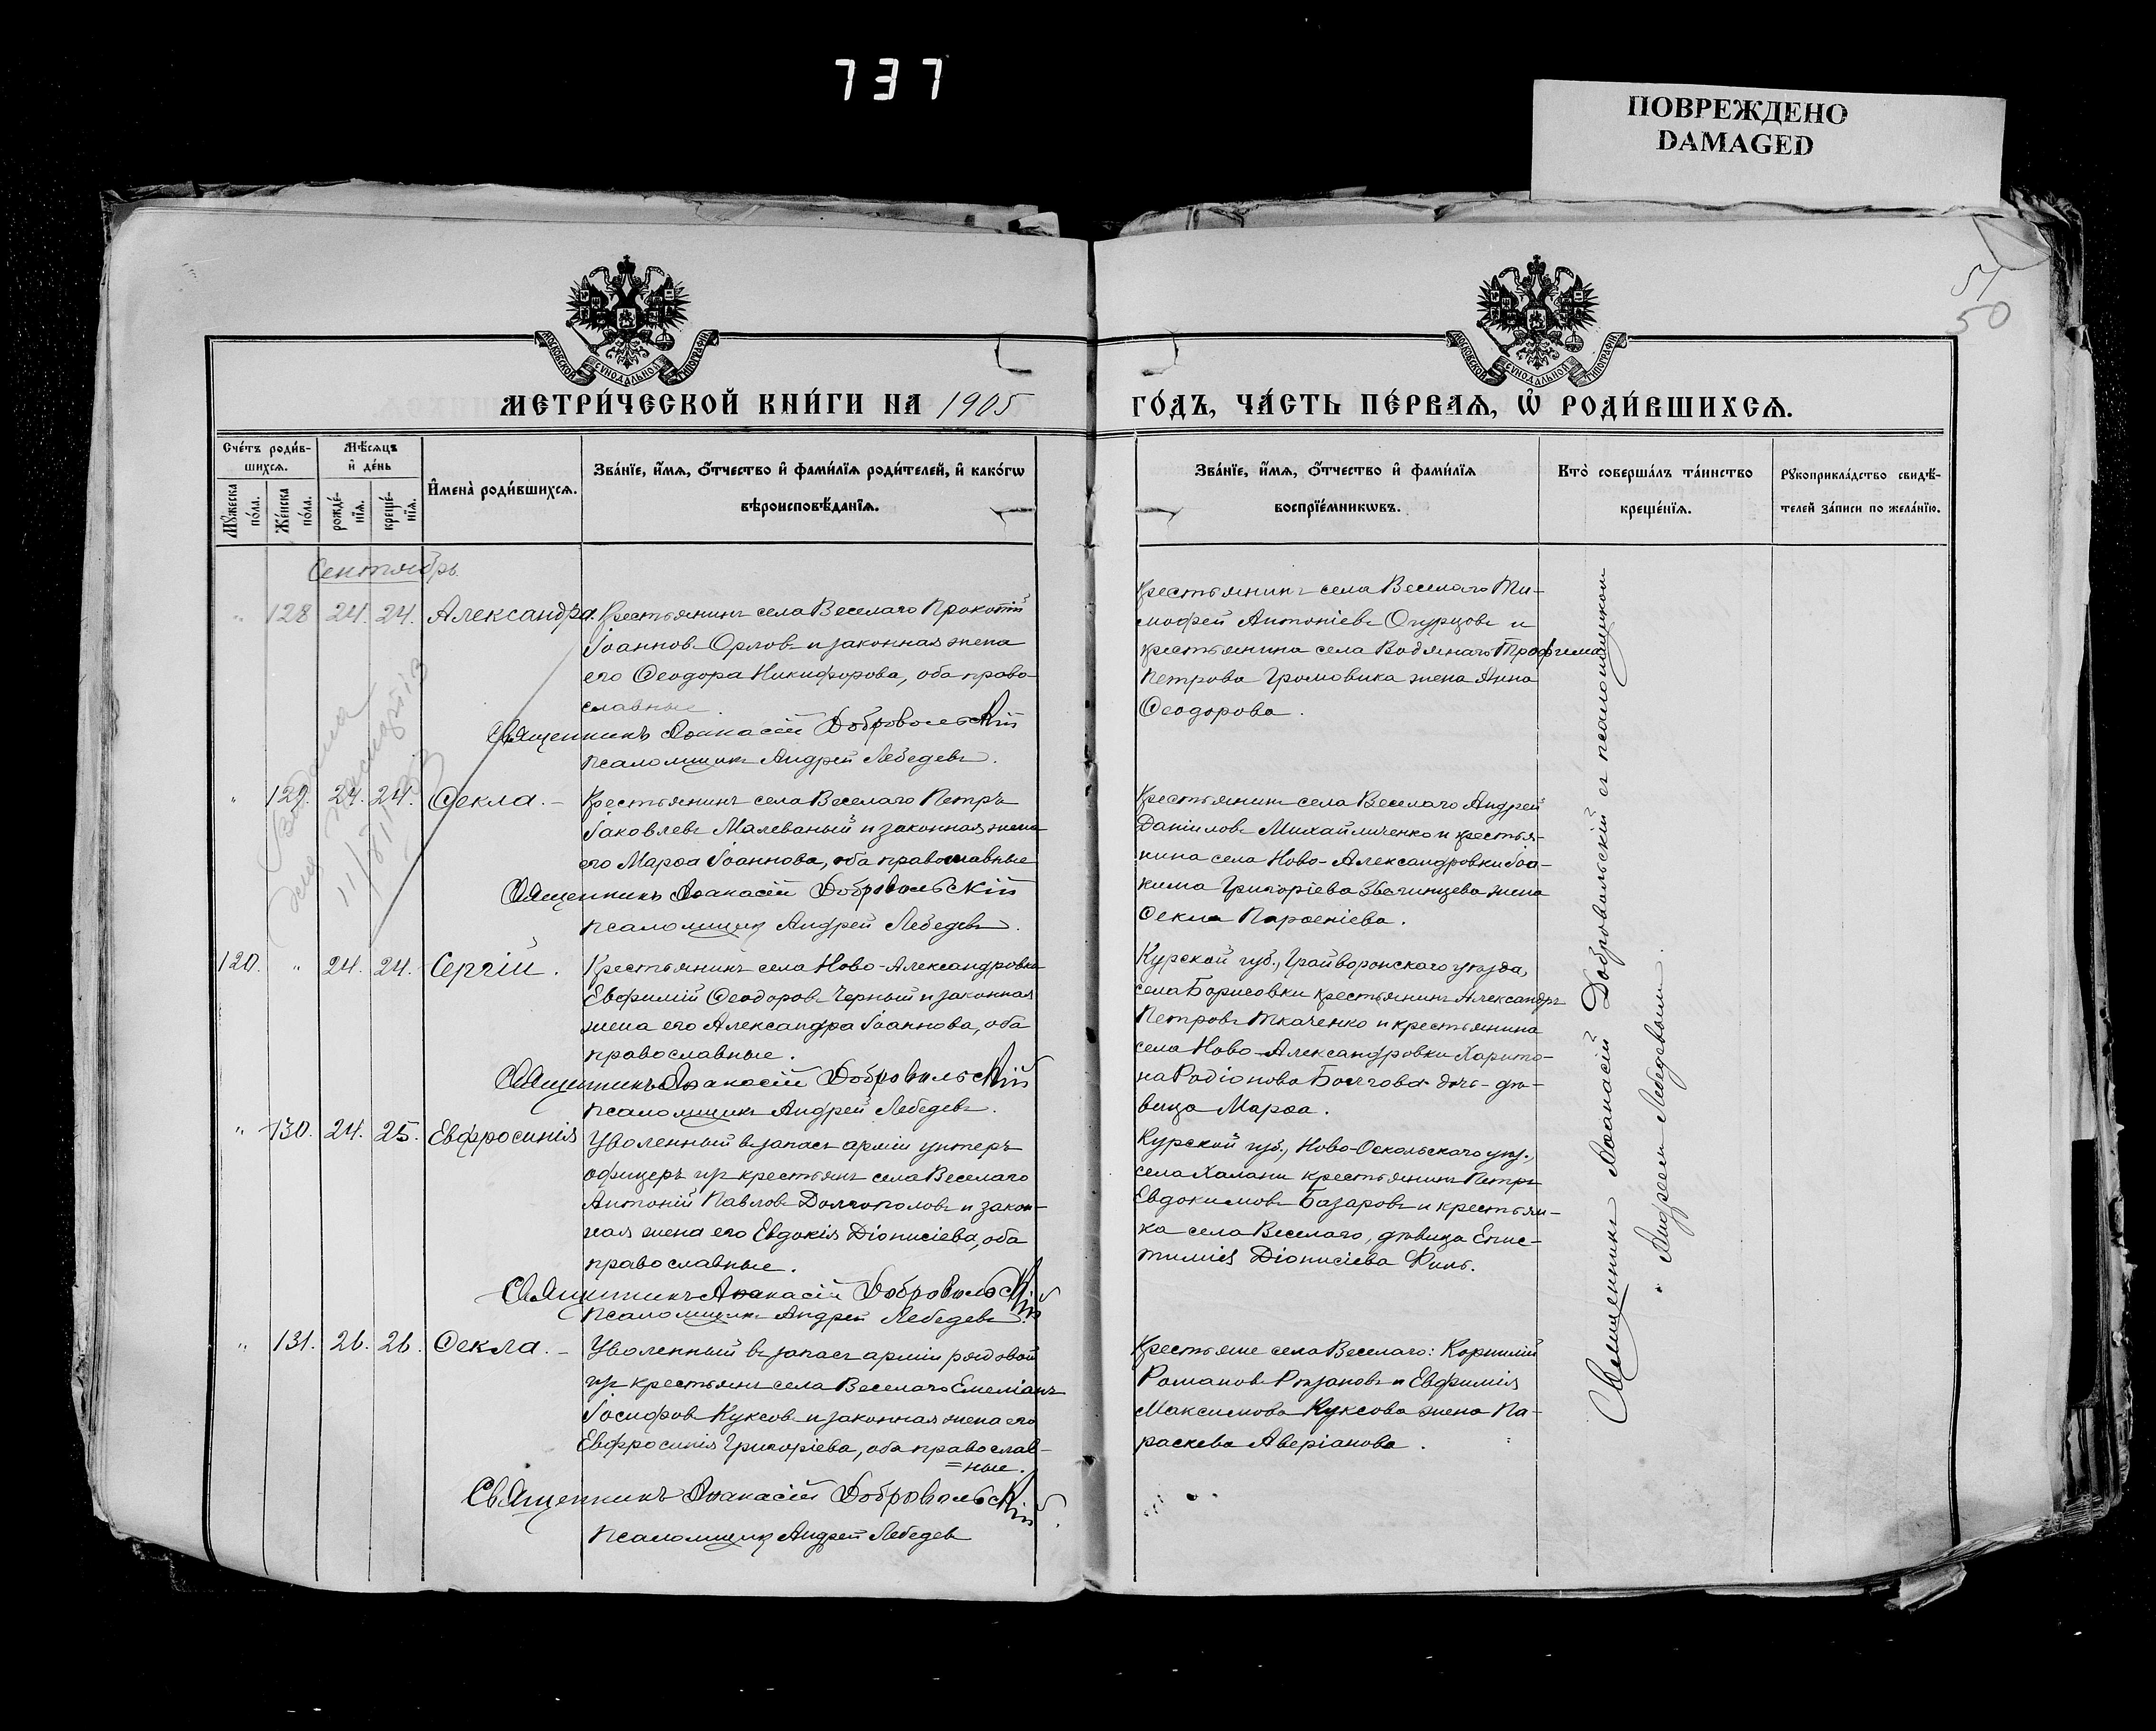 737
ПОВРЕЖДЕНО
DAMAGED
51
50
МОСКОВСКОЙ СѴНОДАЛЬНОЙ ТИПОГРАФІИ
МОСКОВСКОЙ СѴНОДАЛЬНОЙ ТИПОГРАФІИ
МЕТРИ́ЧЕСКОЙ КНИ́ГИ НА 1905
ГО́ДЪ, ЧА́СТЬ ПЕ́РВАѦ, Ѡ҆ РОДИ́ВШИХСѦ.
Сче́тъ роди́в-
шихсѧ.
Мꙋ́жеска по́ла.
Же́нска по́ла.
Мѣ́сѧцъ
и҆ де́нь
рожде́-
нїѧ.
креще́-
нїѧ.
И҆мена̀ роди́вшихсѧ.
Зва́нїе, и҆́мѧ, ѻ҆́тчество и҆ фами́лїѧ роди́телей, и҆ како́гѡ
вѣроисповѣ́данїѧ.
Зва́нїе, и҆́мѧ, ѻ҆́тчество и҆ фами́лїѧ
воспрїе́мникѡвъ.
Кто̀ соверша́лъ та́инство
креще́нїѧ.
Рꙋкоприкла́дство свидѣ́-
телей за́писи по жела́нїю.
Сентябрь
" 128 24. 24. Александра.
Крестьянинъ села Веселаго Прокопій
Іоанновъ Орловъ и законная жена
его Ѳеодора Никифорова, оба право-
славные.
Священникъ Аѳанасій Добровольскій
Псаломщикъ Андрей Лебедевъ.
Крестьянинъ села Веселаго Ти-
мофей Антоніевъ Огурцовъ и
крестьянина села Водянаго Трофима
Петрова Громовика жена Анна
Ѳеодорова.
" 129. 24. 24. Ѳекла.-
Крестьянинъ села Веселаго Петръ
Іаковлевъ Малеваный и законная жена
его Марѳа Іоаннова, оба православные
Священникъ Аѳанасій Добровольскій
Псаломщикъ Андрей Лебедевъ.
Крестьянинъ села Веселаго Андрей
Даніиловъ Михайличенко и крестья-
нина села Ново-Александровки Іоа-
кима Григоріева Звегинцева жена
Ѳекла Парѳеніева.
120. " 24. 24. Сергій.
Крестьянинъ села Ново-Александровки
Евфимій Ѳеодоровъ Черный и законная
жена его Александра Іоаннова, оба
православные.
Священникъ Аѳанасій Добровольскій
Псаломщикъ Андрей Лебедевъ.
Курской губ., Грайворонскаго уѣзда,
села Борисовки крестьянинъ Александръ
Петровъ Ткаченко и крестьянина
села Ново-Александровки Харито-
на Родіонова дочь-дѣ-
вица Марѳа.
" 130. 24. 25. Евфросинія
Уволенный въ запасъ арміи унтеръ
офицеръ изъ крестьянъ села Веселаго
Антоній Павловъ Долгополовъ и закон-
ная жена его Евдокія Діонисіева, оба
православные.
Священникъ Аѳанасій Добровольскій
Псаломщикъ Андрей Лебедевъ.
Курской губ., Ново-Оскольскаго уѣз.,
села Халани крестьянинъ Петръ
Евдокимовъ Базаровъ и крестьян-
ка села Веселаго, дѣвица Епис-
тимія Діонисіева
" 131. 26. 26. Ѳекла.-
Уволенный въ запасъ арміи рядовой
изъ крестьянъ села Веселаго Емеліанъ
Іосифовъ Куксовъ и законная жена его
Евфросинія Григоріева, оба православ-
=ные.
Священникъ Аѳанасій Добровольскій.
Псаломщикъ Андрей Лебедевъ
Крестьяне села Веселаго: Корнилій
Романовъ Рязановъ и Евфимія
Максимова Куксова жена Па-
раскева Аверіанова.
Священникъ Аѳанасій Добровольскій съ псаломщикомъ
Андреемъ Лебедевымъ.